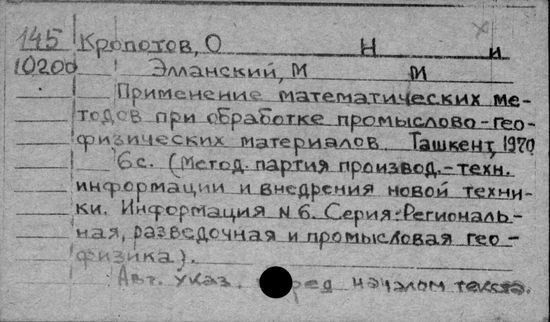 145 Кропотов, О Н и
10200 Элланский, М М
Применение математических ме-
тодов при обработке промыслово-гео-
физических материалов. Ташкент, 1970
6с. (Метод. партия производ.-техн.
информации и внедрения новой техни-
ки. Информация N 6. Серия: Региональ-
ная, разведочная и промысловая гео-
физика).
Авт. указ. перед началом текста.